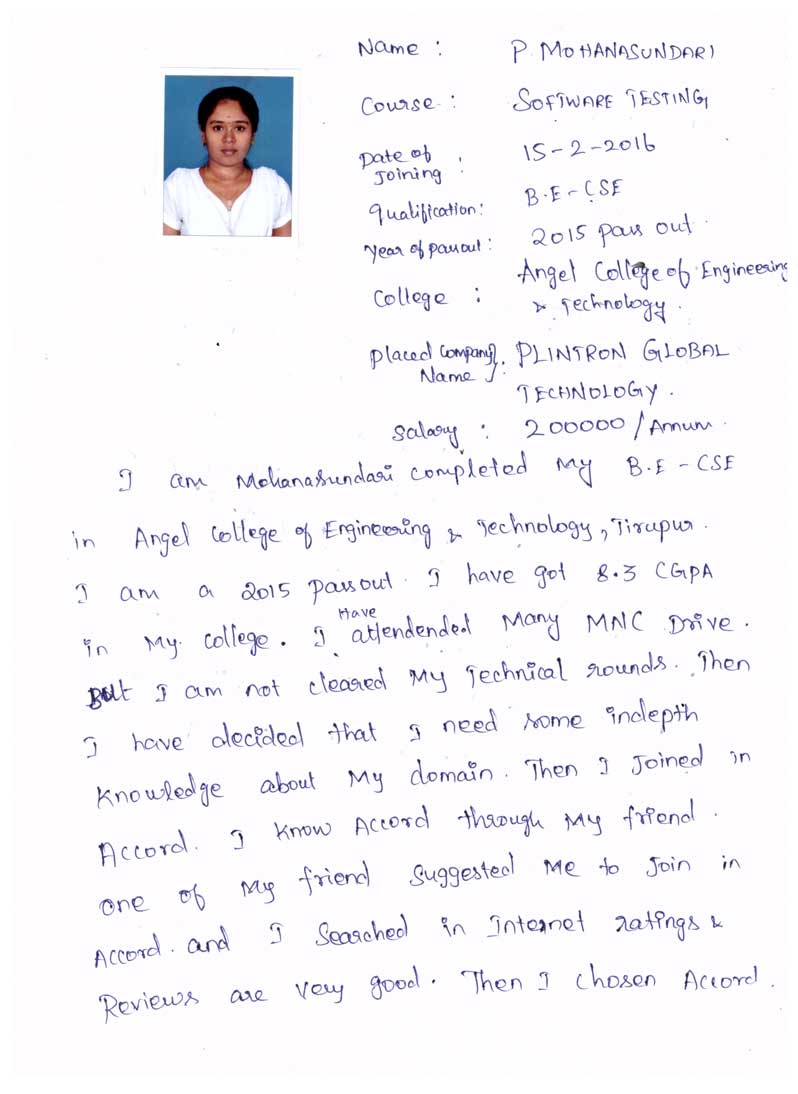 Name : P. MOHANASUNDARI
Course : SOFTWARE TESTING
Date of Joining : 15-2-2016
Qualification : B.E - CSE
Year of passout : 2015 pass out.
College : Angel College of Engineering
& Technology.
Placed Company Name : PLINTRON GLOBAL
TECHNOLOGY.
Salary : 200000 / Annum.
I am Mohanasundari completed My B.E - CSE
in Angel College of Engineering & Technology, Tirupur.
I am a 2015 passout. I have got 8.3 CGPA
in My college. I Have attendended Many MNC Drive.
But I am not cleared My Technical rounds. Then
I have decided that I need some indepth
Knowledge about My domain. Then I Joined in
Accord. I Know Accord through My friend.
one of My friend Suggested Me to Join in
Accord. and I Searched in Internet ratings &
Reviews are very good. Then I chosen Accord.